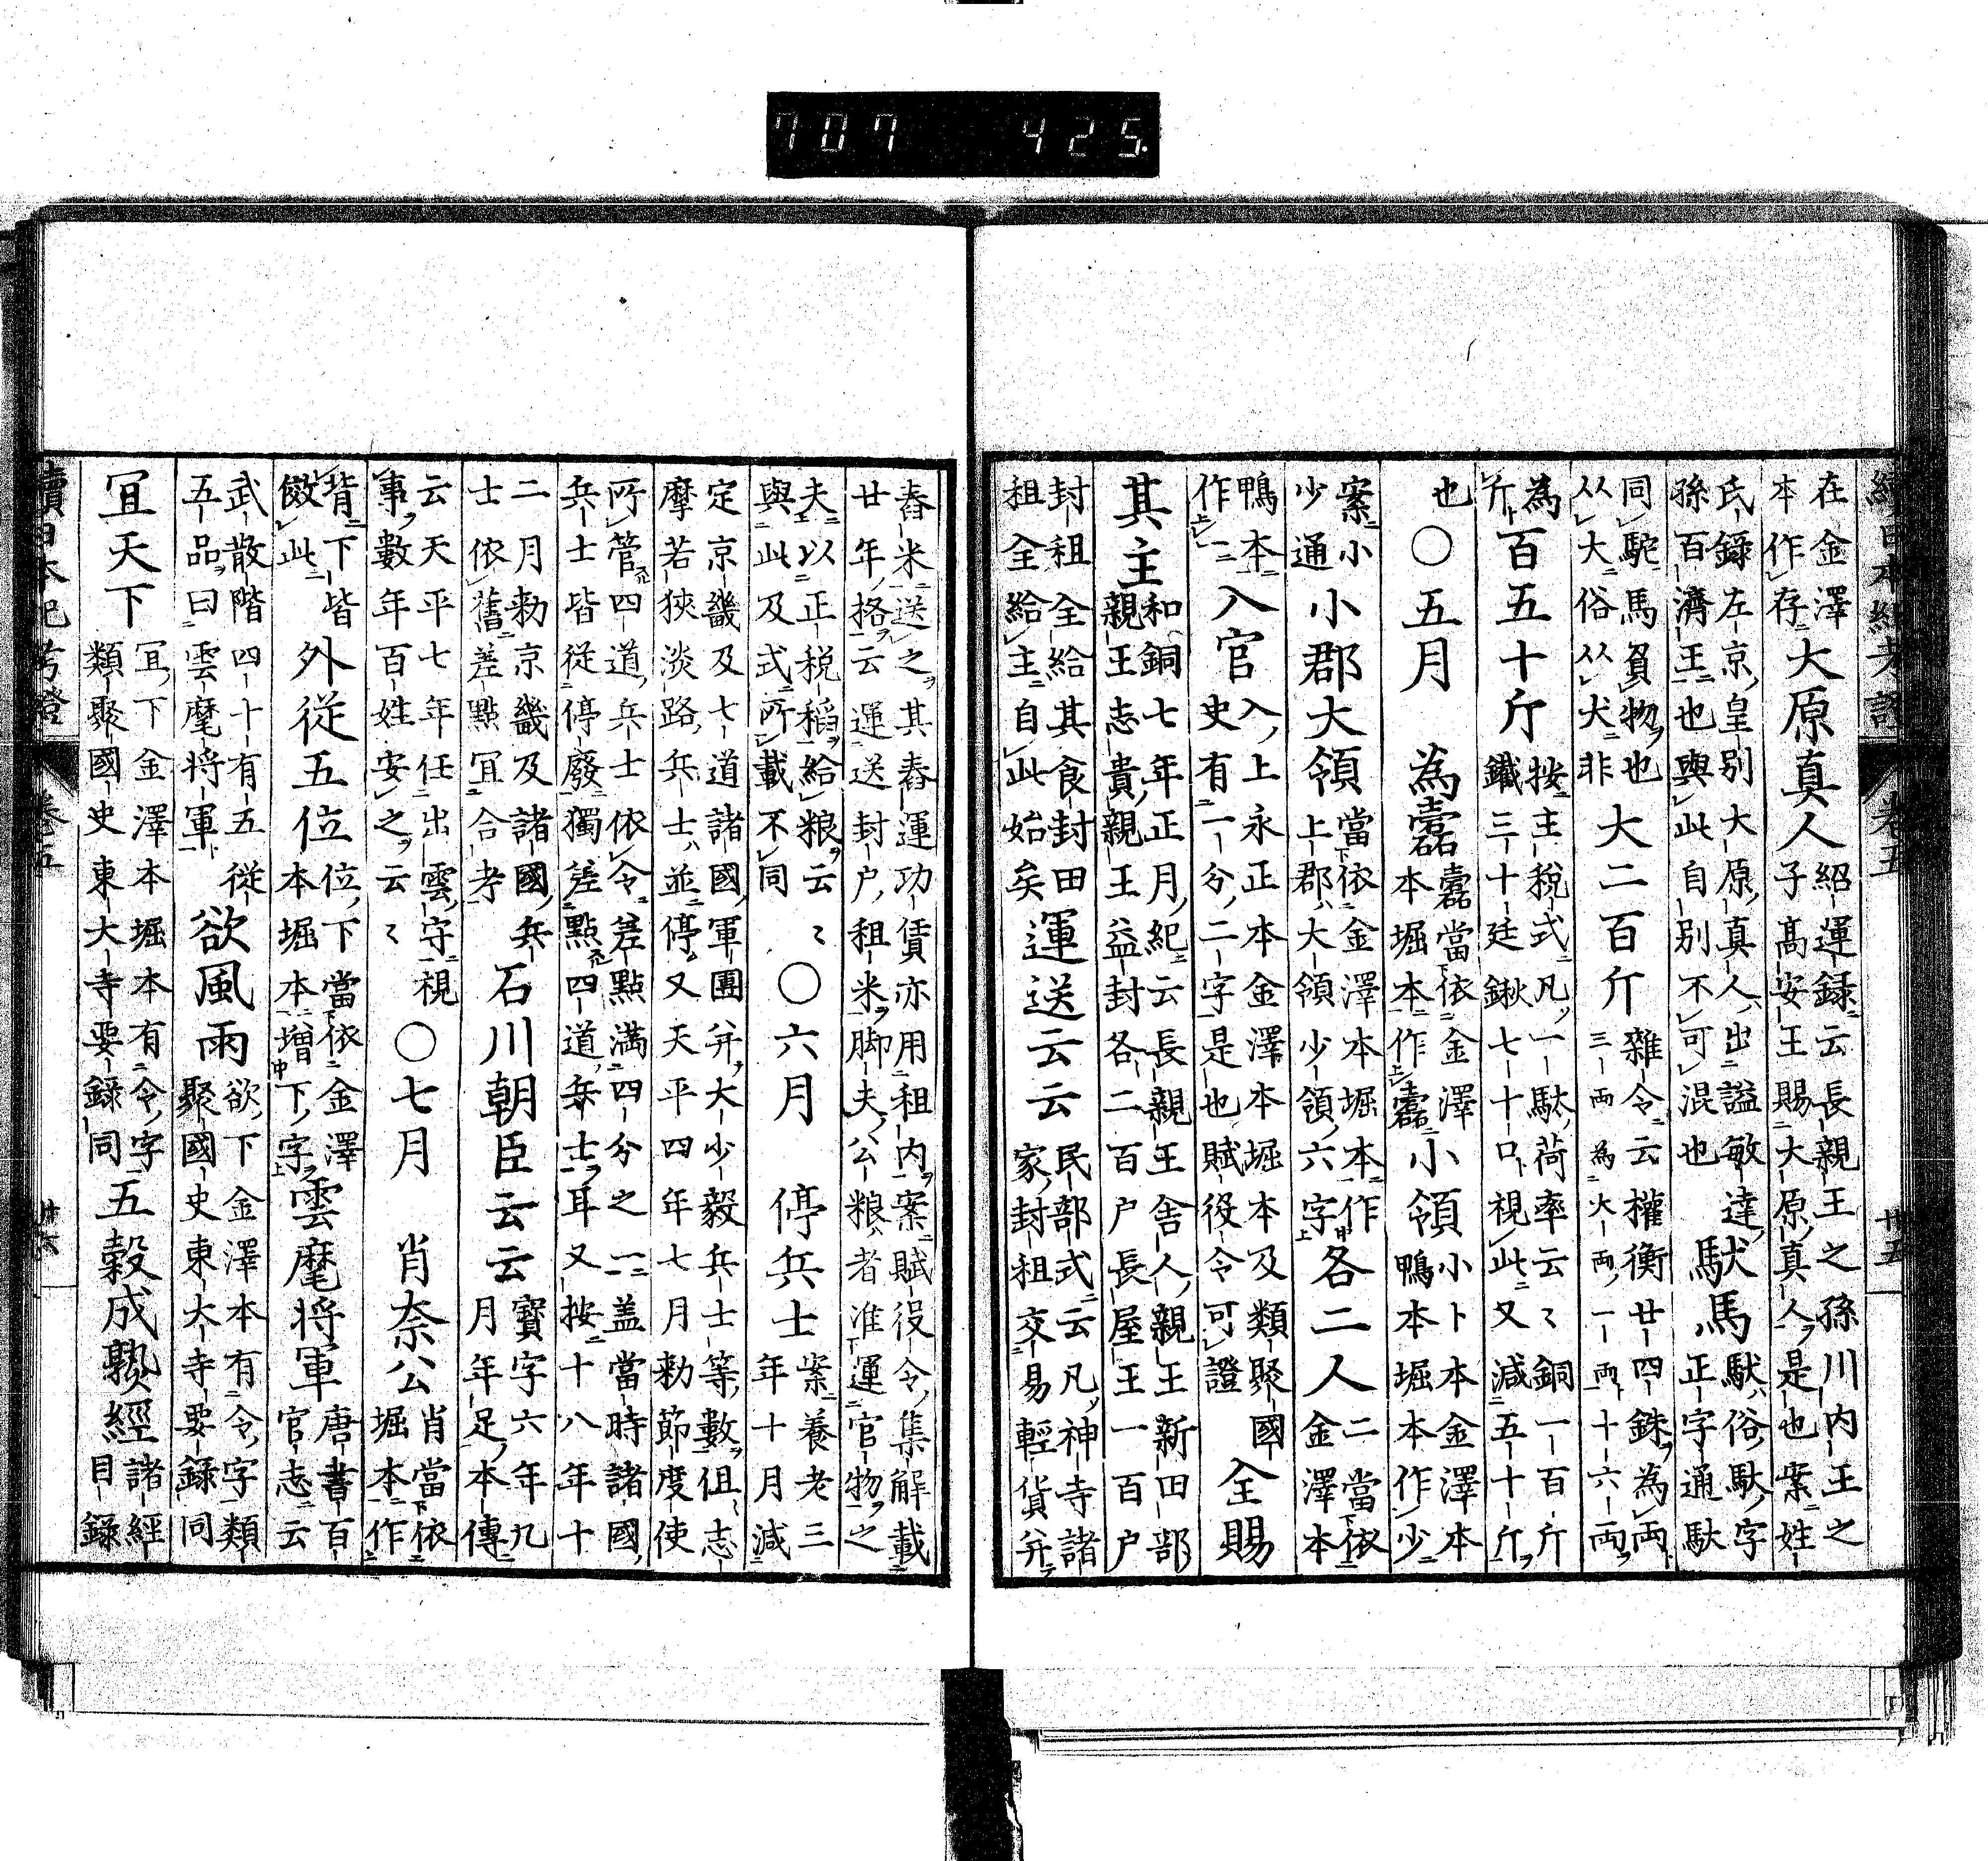 續日本紀考證 卷五 廿五
在金澤本作存大原真人紹運録云長親王之孫川内王之子髙安王賜大原真人是也案姓
氏録左京皇別大原真人出謚敏達孫百濟王也與此自別不可混也馱馬馱俗馱字正字通馱
同駝馬負物也从大俗从犬非大二百斤雜令云權衡廿四銖為兩三兩為大兩一兩十六兩
為斤百五十斤按主税式凡一馱荷率云〻銅一百斤鐵三十廷鍬七十口視此又減五十斤
也○五月為當依金澤本堀本作小領小卜本金澤本鴨本堀本作少
案小少通小郡大領當依金澤本堀本作上郡大領少領六字各二人二當依金澤本
鴨本作一二入官入上永正本金澤本堀本及類聚國史有一分二字是也賦役令可證全賜
其主和銅七年正月紀云長親王舎人親王新田部親王志貴親王益封各二百戸長屋王一百戸
封租全給其食封田租全給主自此始矣運送云云民部式云凡神寺諸家封租交易輕貨并
舂米送之其舂運功賃亦用租内案賦役令集解載廿年格云運送封户租米脚夫公粮者准運官物之
夫以正税稻給粮云〻與此及式所載不同○六月停兵士案養老三年十月減
定京畿及七道諸國軍團并大少毅兵士等數但志摩若狹淡路兵士並停又天平四年七月勅節度使
所管四道兵士依令差點滿四分之一盖當時諸國兵士皆從停廢獨差點四道兵士耳又按十八年十
二月勅京畿及諸國兵士依舊差點冝合考石川朝臣云云寳字六年九月年足本傳
云天平七年任出雲守視事數年百姓安之云〻○七月肖奈公肖當依堀本作
背下皆倣此外從五位位下當依金澤本堀本增下字雲麾将軍唐書百官志云
武散階四十有五從五品曰雲麾将軍欲風雨欲下金澤本有令字類聚國史東大寺要録同
冝天下冝下金澤本堀本有令字類聚國史東大寺要録同五穀成𤍠經諸經目録
續日本紀考證 卷五 廿六
707 425